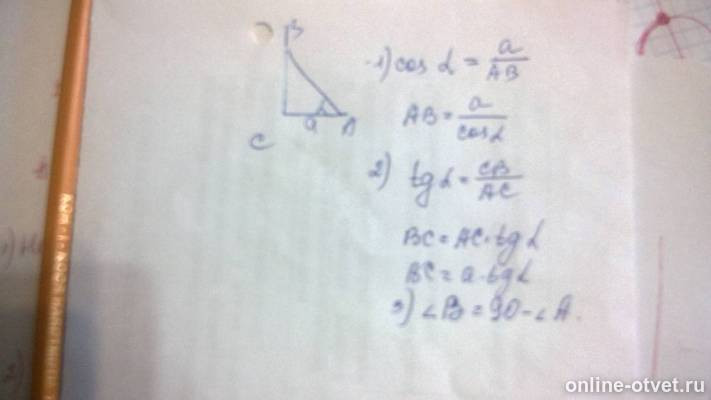 B
C a A
1) cos α = a/AB
AB = a/cosα
2) tg α = CB/AC
BC = AC · tg α
BC = a · tg α
3) ∠B = 90 - ∠A.
online-otvet.ru